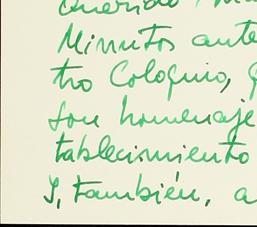 Querido
Minutos ante
tro Coloquio,
son homenaje
tablecimiento
Y, también, a